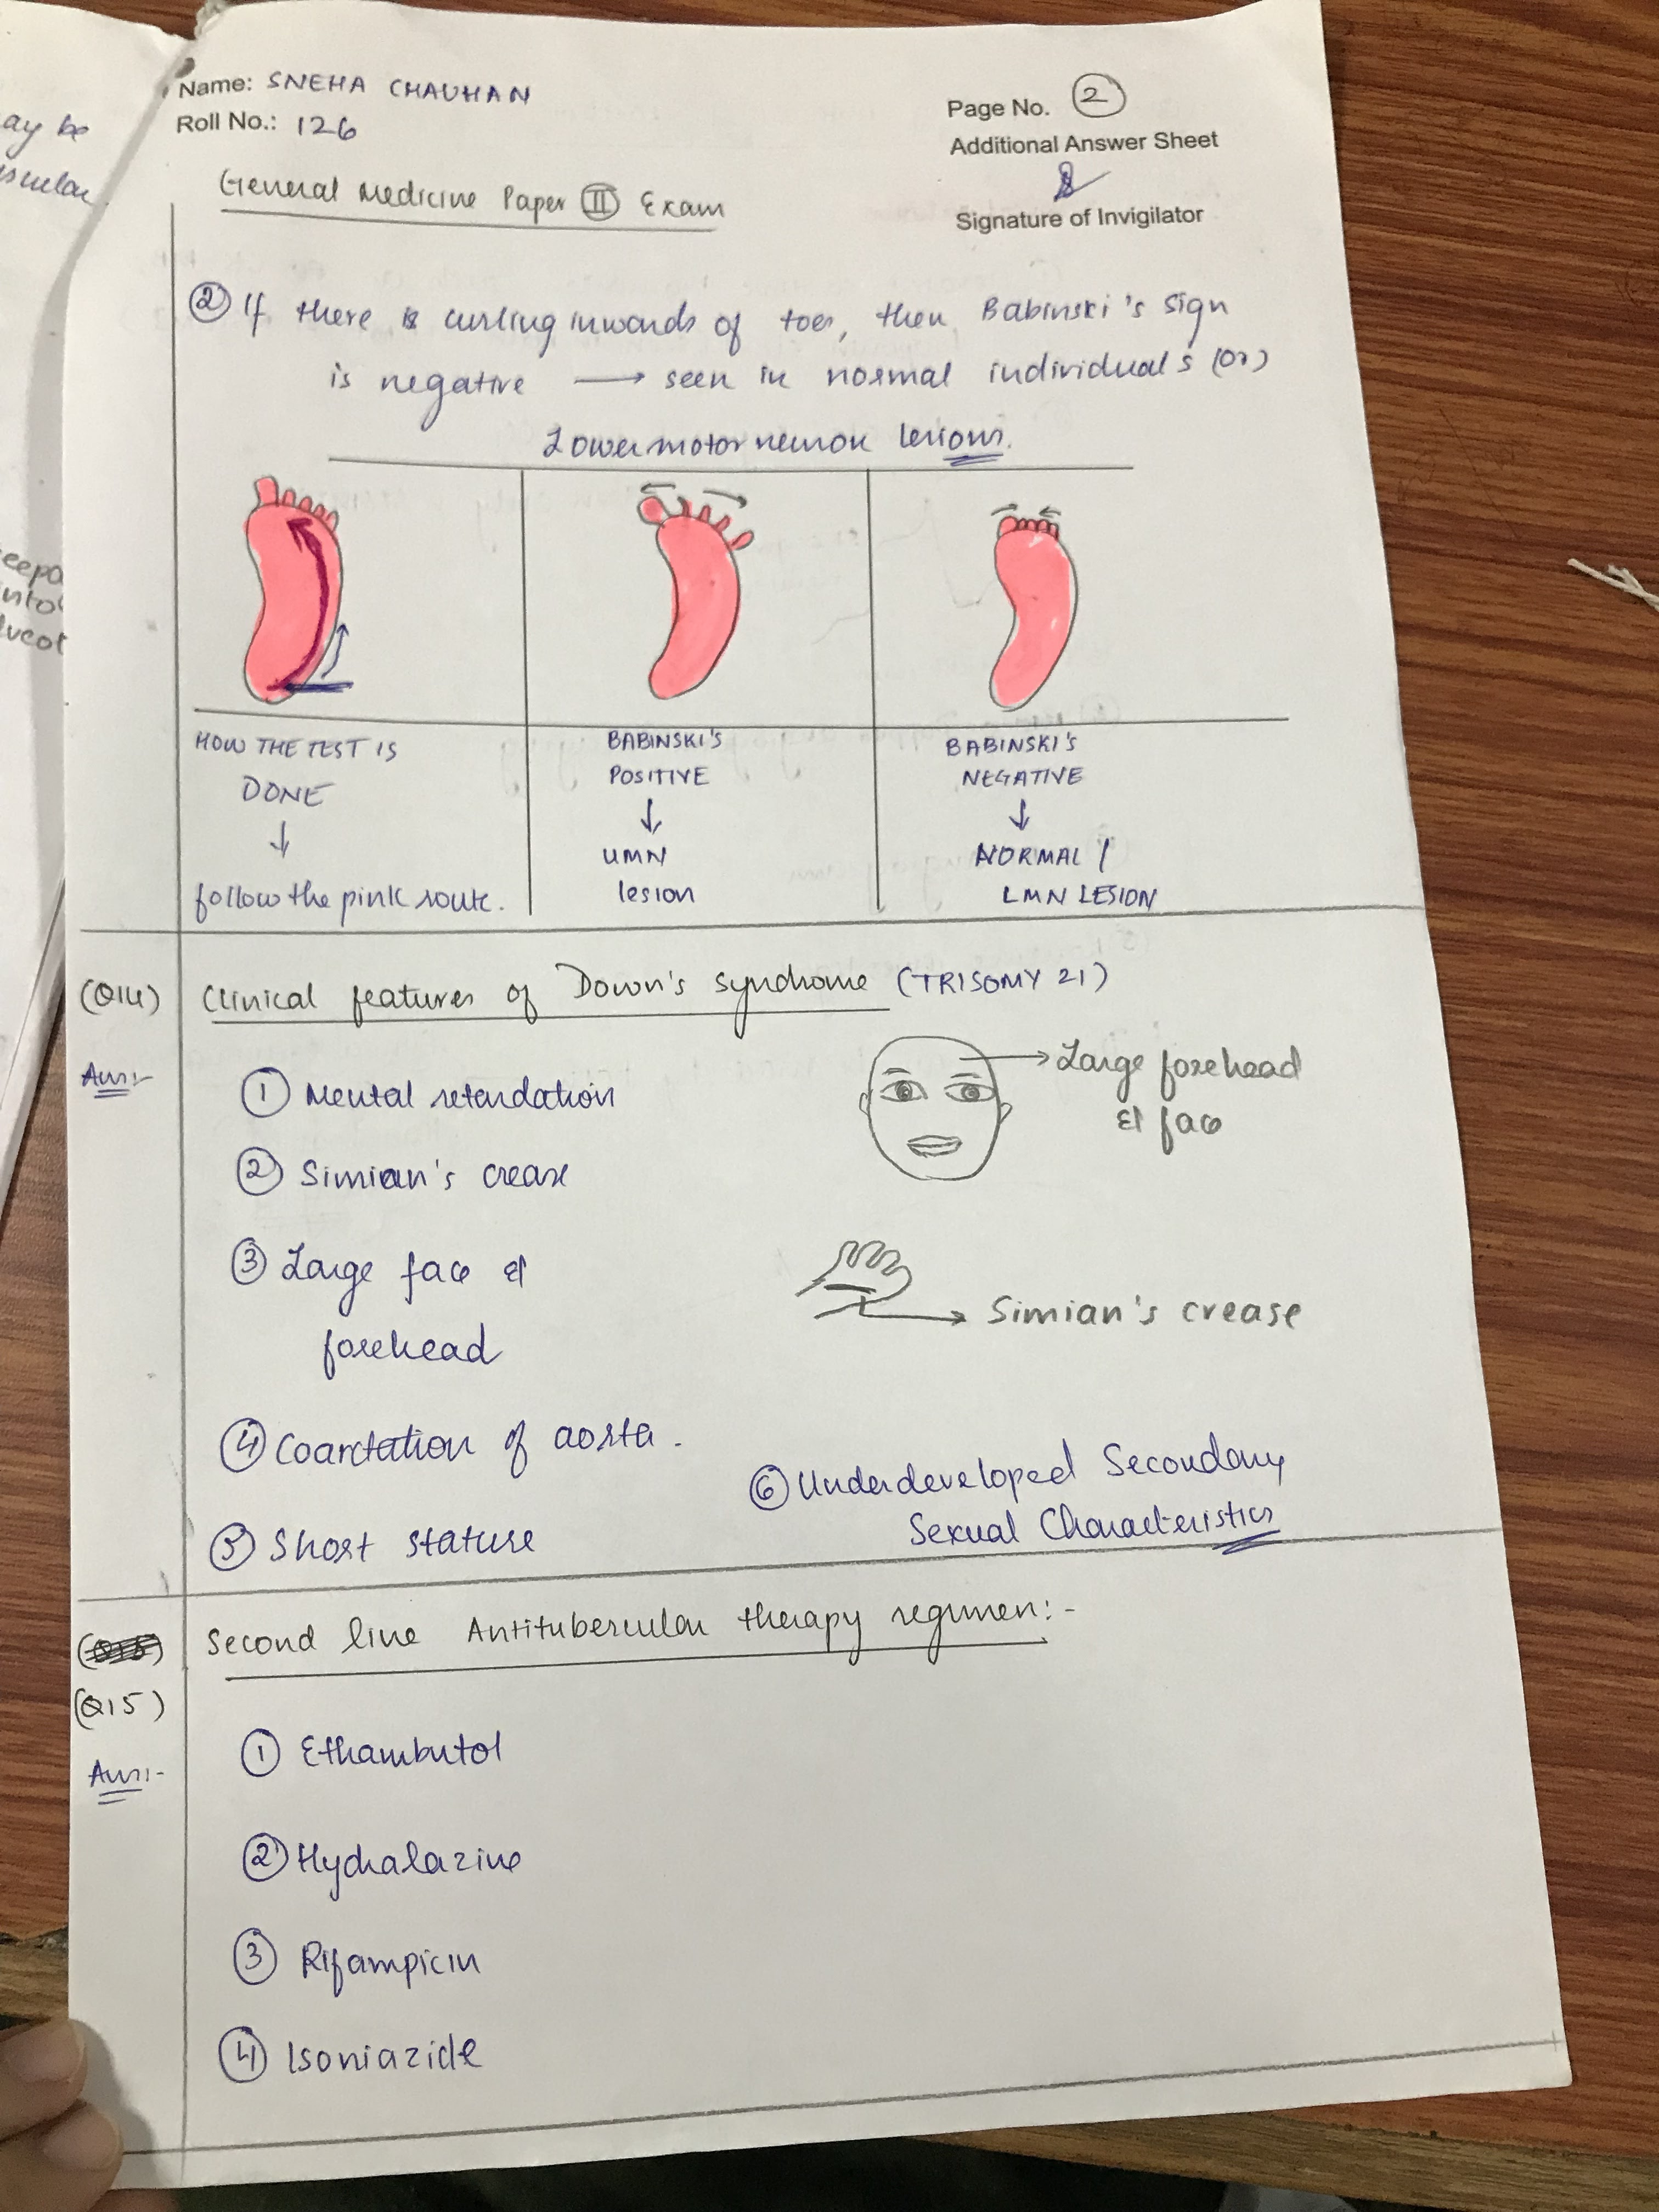 Name: SNEHA CHAUHAN
Roll No.: 126
Page No. 2
Additional Answer Sheet
Signature of Invigilator
General Medicine Paper II Exam
ay be
eepa
into
② If there is curling inwards of toes, then Babinski's sign
is negative → seen in normal individual's (or)
Lower motor neuron lesions.
HOW THE TEST IS
DONE
↓
follow the pink route.
BABINSKI'S
POSITIVE
↓
UMN
lesion
BABINSKI'S
NEGATIVE
↓
NORMAL /
LMN LESION
(Q14) Clinical features of Down's syndrome (TRISOMY 21)
Ans:-
① Mental retardation
② Simian's crease
③ Large face &
forehead
④ Coarctation of aorta.
⑤ Short stature
→ Large forehead
& face
→ Simian's crease
⑥ Underdeveloped Secondary
Sexual Characteristics
Second line Antitubercular therapy regimen:-
(Q15)
Ans:-
① Ethambutol
② Hydralazine
③ Rifampicin
④ Isoniazide